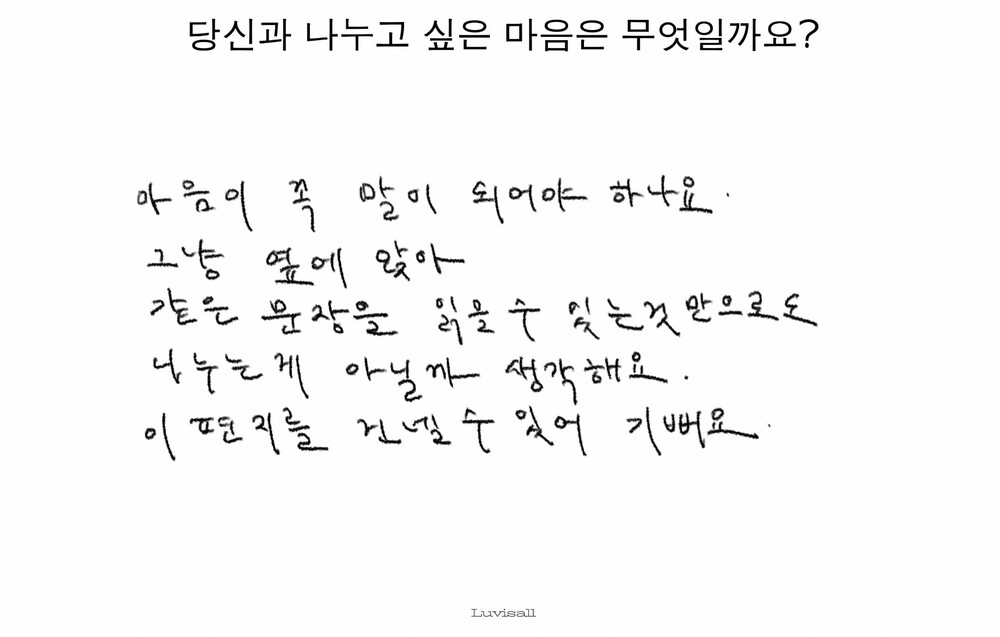 당신과 나누고 싶은 마음은 무엇일까요?
마음이 꼭 말이 되어야 하나요.
그냥 옆에 앉아
같은 문장을 읽을 수 있는것만으로도
나누는게 아닐까 생각해요.
이 편지를 건넬 수 있어 기뻐요.
Luvisall